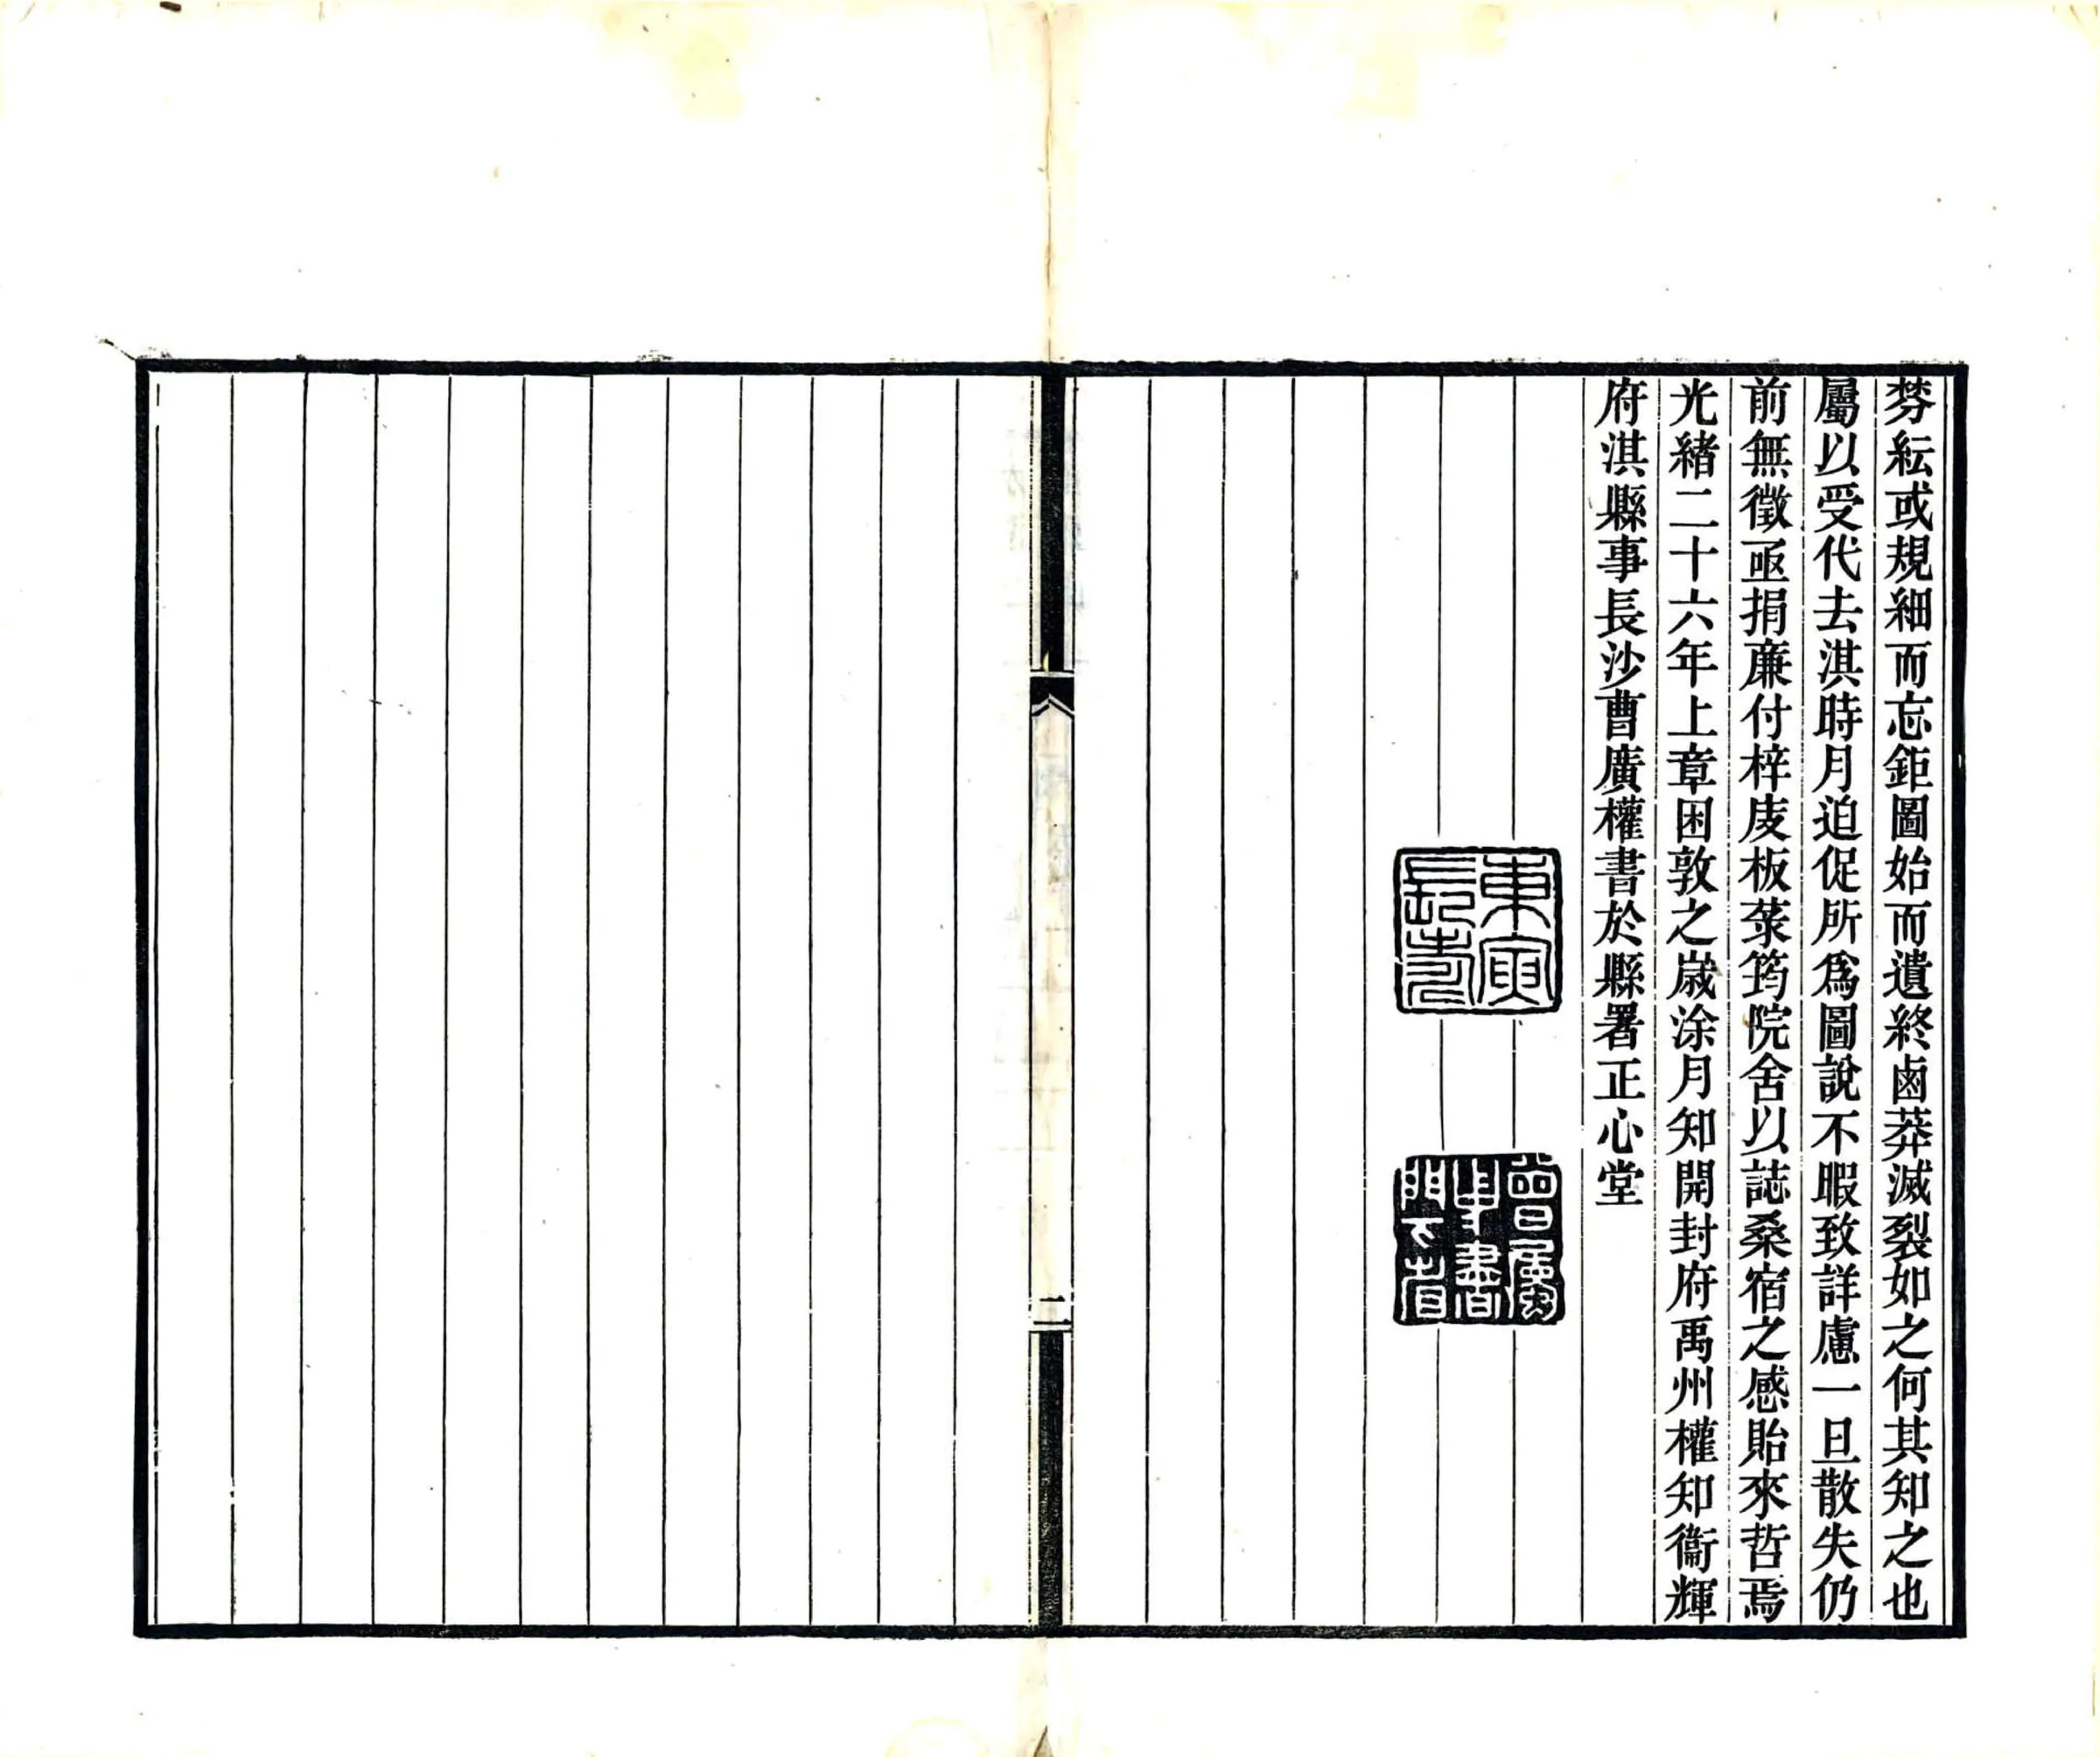 棼紜或規細而忘鉅圖始而遺終鹵莽滅裂如之何其知之也
屬以受代去淇時月迫促所爲圖說不暇致詳慮一旦散失仍
前無徵亟捐廉付梓庋板菉筠院舍以誌桑宿之感貽來哲焉
光緒二十六年上章困敦之歲涂月知開封府禹州權知衞輝
府淇縣事長沙曹廣權書於縣署正心堂
東寅
二